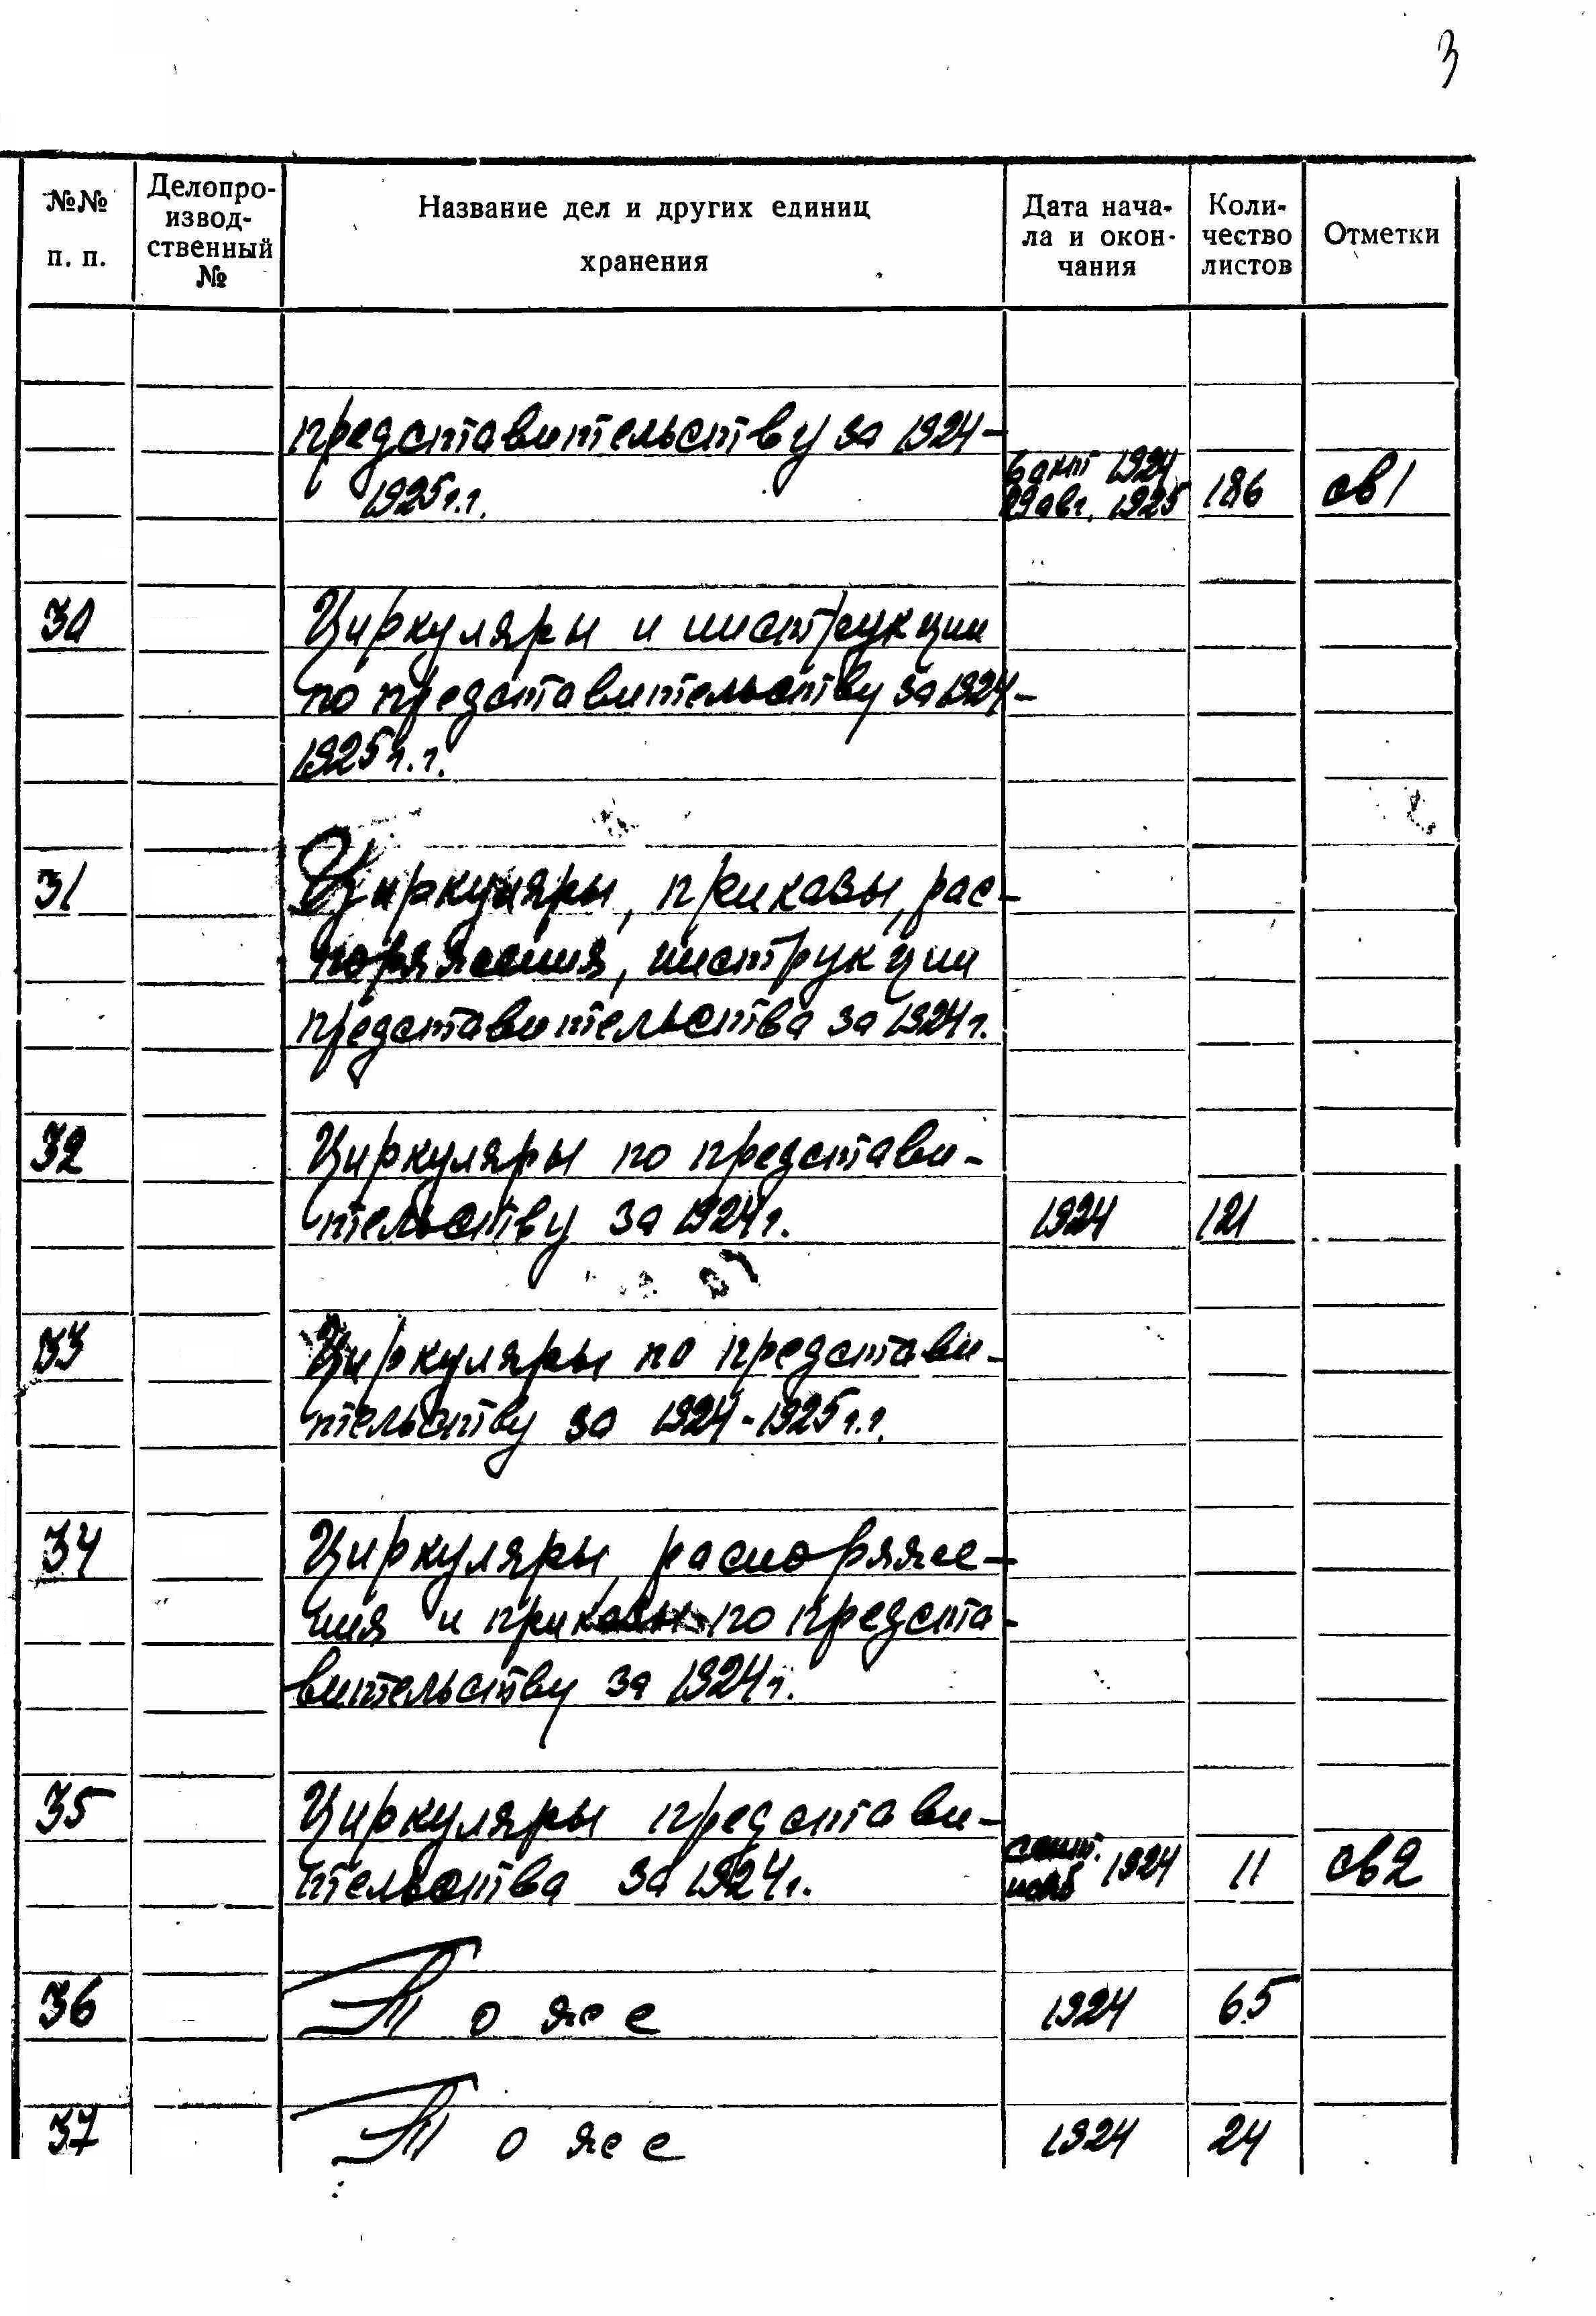 3
№№ п. п.
Делопро-
извод-
ственный
№
Название дел и других единиц
хранения
Дата нача-
ла и окон-
чания
Коли-
чество
листов
Отметки
представительству за 1924-
1925 г.г.
6 окт 1924
29 авг. 1925
186
св 1
30
Циркуляры и инструкции
по представительству за 1924-
1925 г.г.
31
Циркуляры, приказы, рас-
поряжения, инструкции
представительства за 1924 г.
32
Циркуляры по представи-
тельству за 1924 г.
1924
121
33
Циркуляры по представи-
тельству за 1924-1925 г.г.
34
Циркуляры, распоряже-
ния и приказы по предста-
вительству за 1924 г.
35
Циркуляры представи-
тельства за 1924 г.
сент.
1924
11
св 2
36
То же
1924
65
37
То же
1924
24